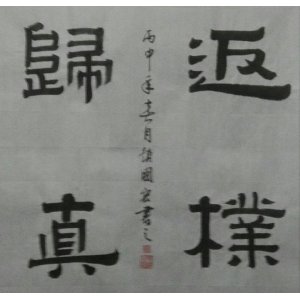 返樸
歸真
丙申年春月
國宏書之